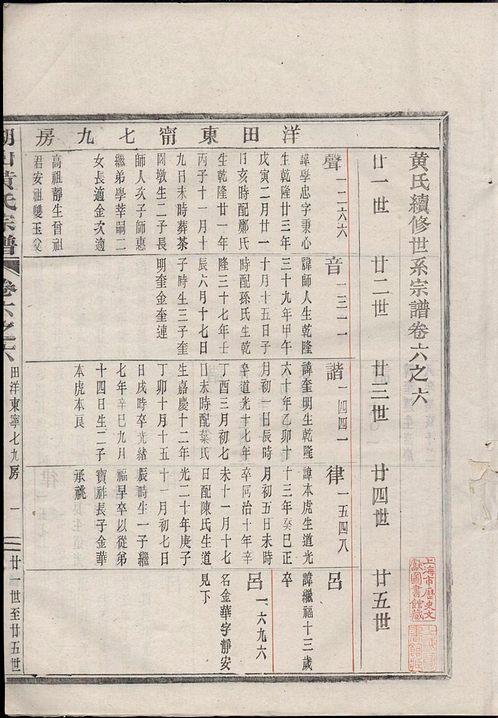 黄氏續修世系宗譜卷六之六
廿一世
廿二世
廿三世
廿四世
廿五世
洋田東甯七九房
聲 一二六六
諱學忠字秉心
生乾隆廿三年
戊寅二月廿一
日亥時配鄭氏
生乾隆廿一年
丙子十一月十
九日未時葬茶
園墩生二子長
師人次子師惠
繼弟學莘嗣二
女長適金次適
高祖靜生曾祖
君安祖雙玉父
音 一三二一
諱師人生乾隆
三十九年甲午
十月十五日子
時配孫氏生乾
隆三十七年壬
辰六月十七日
子時生三子奎
明奎金奎連
諧 一四四一
諱奎明生乾隆
六十年乙卯十
月初一日辰時
卒道光十七年
丁酉三月初七
日未時配葉氏
生嘉慶十二年
丁卯十月十五
日戌時卒光緒
七年辛巳九月
十四日生二子
本虎本良
律 一五四八
諱本虎生道光
十三年癸巳正
月初五日未時
卒同治十年辛
未十一月十七
日配陳氏生道
光二十年庚子
十一月初七日
辰時生一子繼
福早卒以從弟
寶祥長子金華
承祧
呂
諱繼福十三歲
卒
呂 一六九六
名金華字靜安
見下
山黄氏宗譜
卷六之六
田洋東甯七九房
一
廿一世至廿五世
上海市歷史文
獻圖書館藏